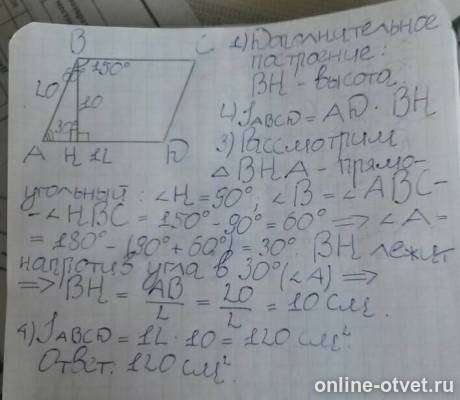 B C
150°
20
10
30°
A H 12 D
1) Дополнительное
построение:
BH - высота
2) S_ABCD = AD · BH
3) Рассмотрим
△ BHA - прямо-
угольный: ∠H = 90°, ∠B = ∠ABC -
- ∠HBC = 150° - 90° = 60° ⟹ ∠A =
= 180° - (90° + 60°) = 30°. BH лежит
напротив угла в 30° (∠A) ⟹
⟹ BH = AB/2 = 20/2 = 10 см.
4) S_ABCD = 12 · 10 = 120 см²
Ответ: 120 см².
online-otvet.ru